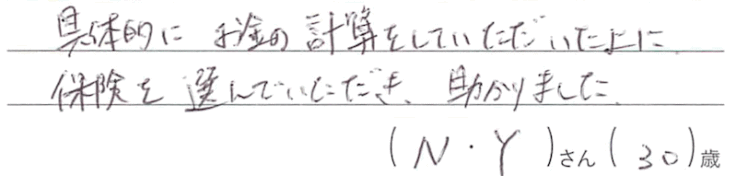 具体的に お金の計算をしていただいた上に
保険を選んでいただき、助かりました。
(N・Y)さん(30)歳